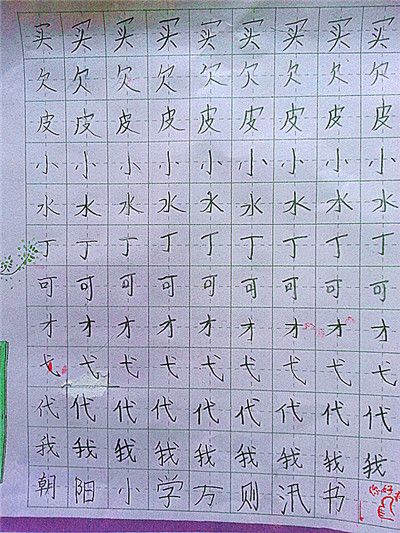 买买买买买买买买买
欠欠欠欠欠欠欠欠欠
皮皮皮皮皮皮皮皮皮
小小小小小小小小小
水水水水水水水水水
丁丁丁丁丁丁丁丁丁
可可可可可可可可可
才才才才才才才才才
弋弋弋弋弋弋弋弋弋
代代代代代代代代代
我我我我我我我我我
朝阳小学万则汛书